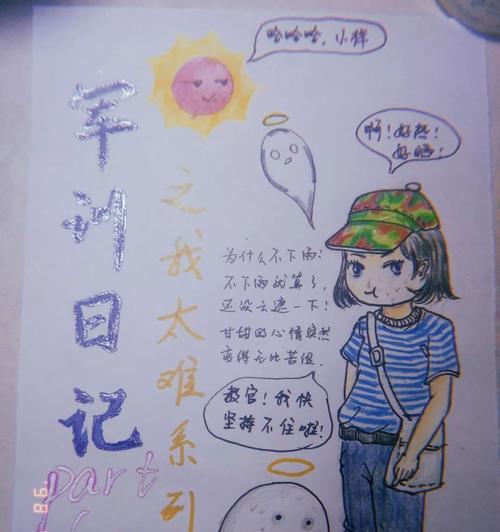 军训日记
part
之我太难系列
哈哈哈,小样
啊!好热!
好晒!
为什么不下雨?
不下雨就算了,
还没云遮一下!
甘甜的心情突然
变得无比苦涩.
教官!我快
坚持不住啦!
98